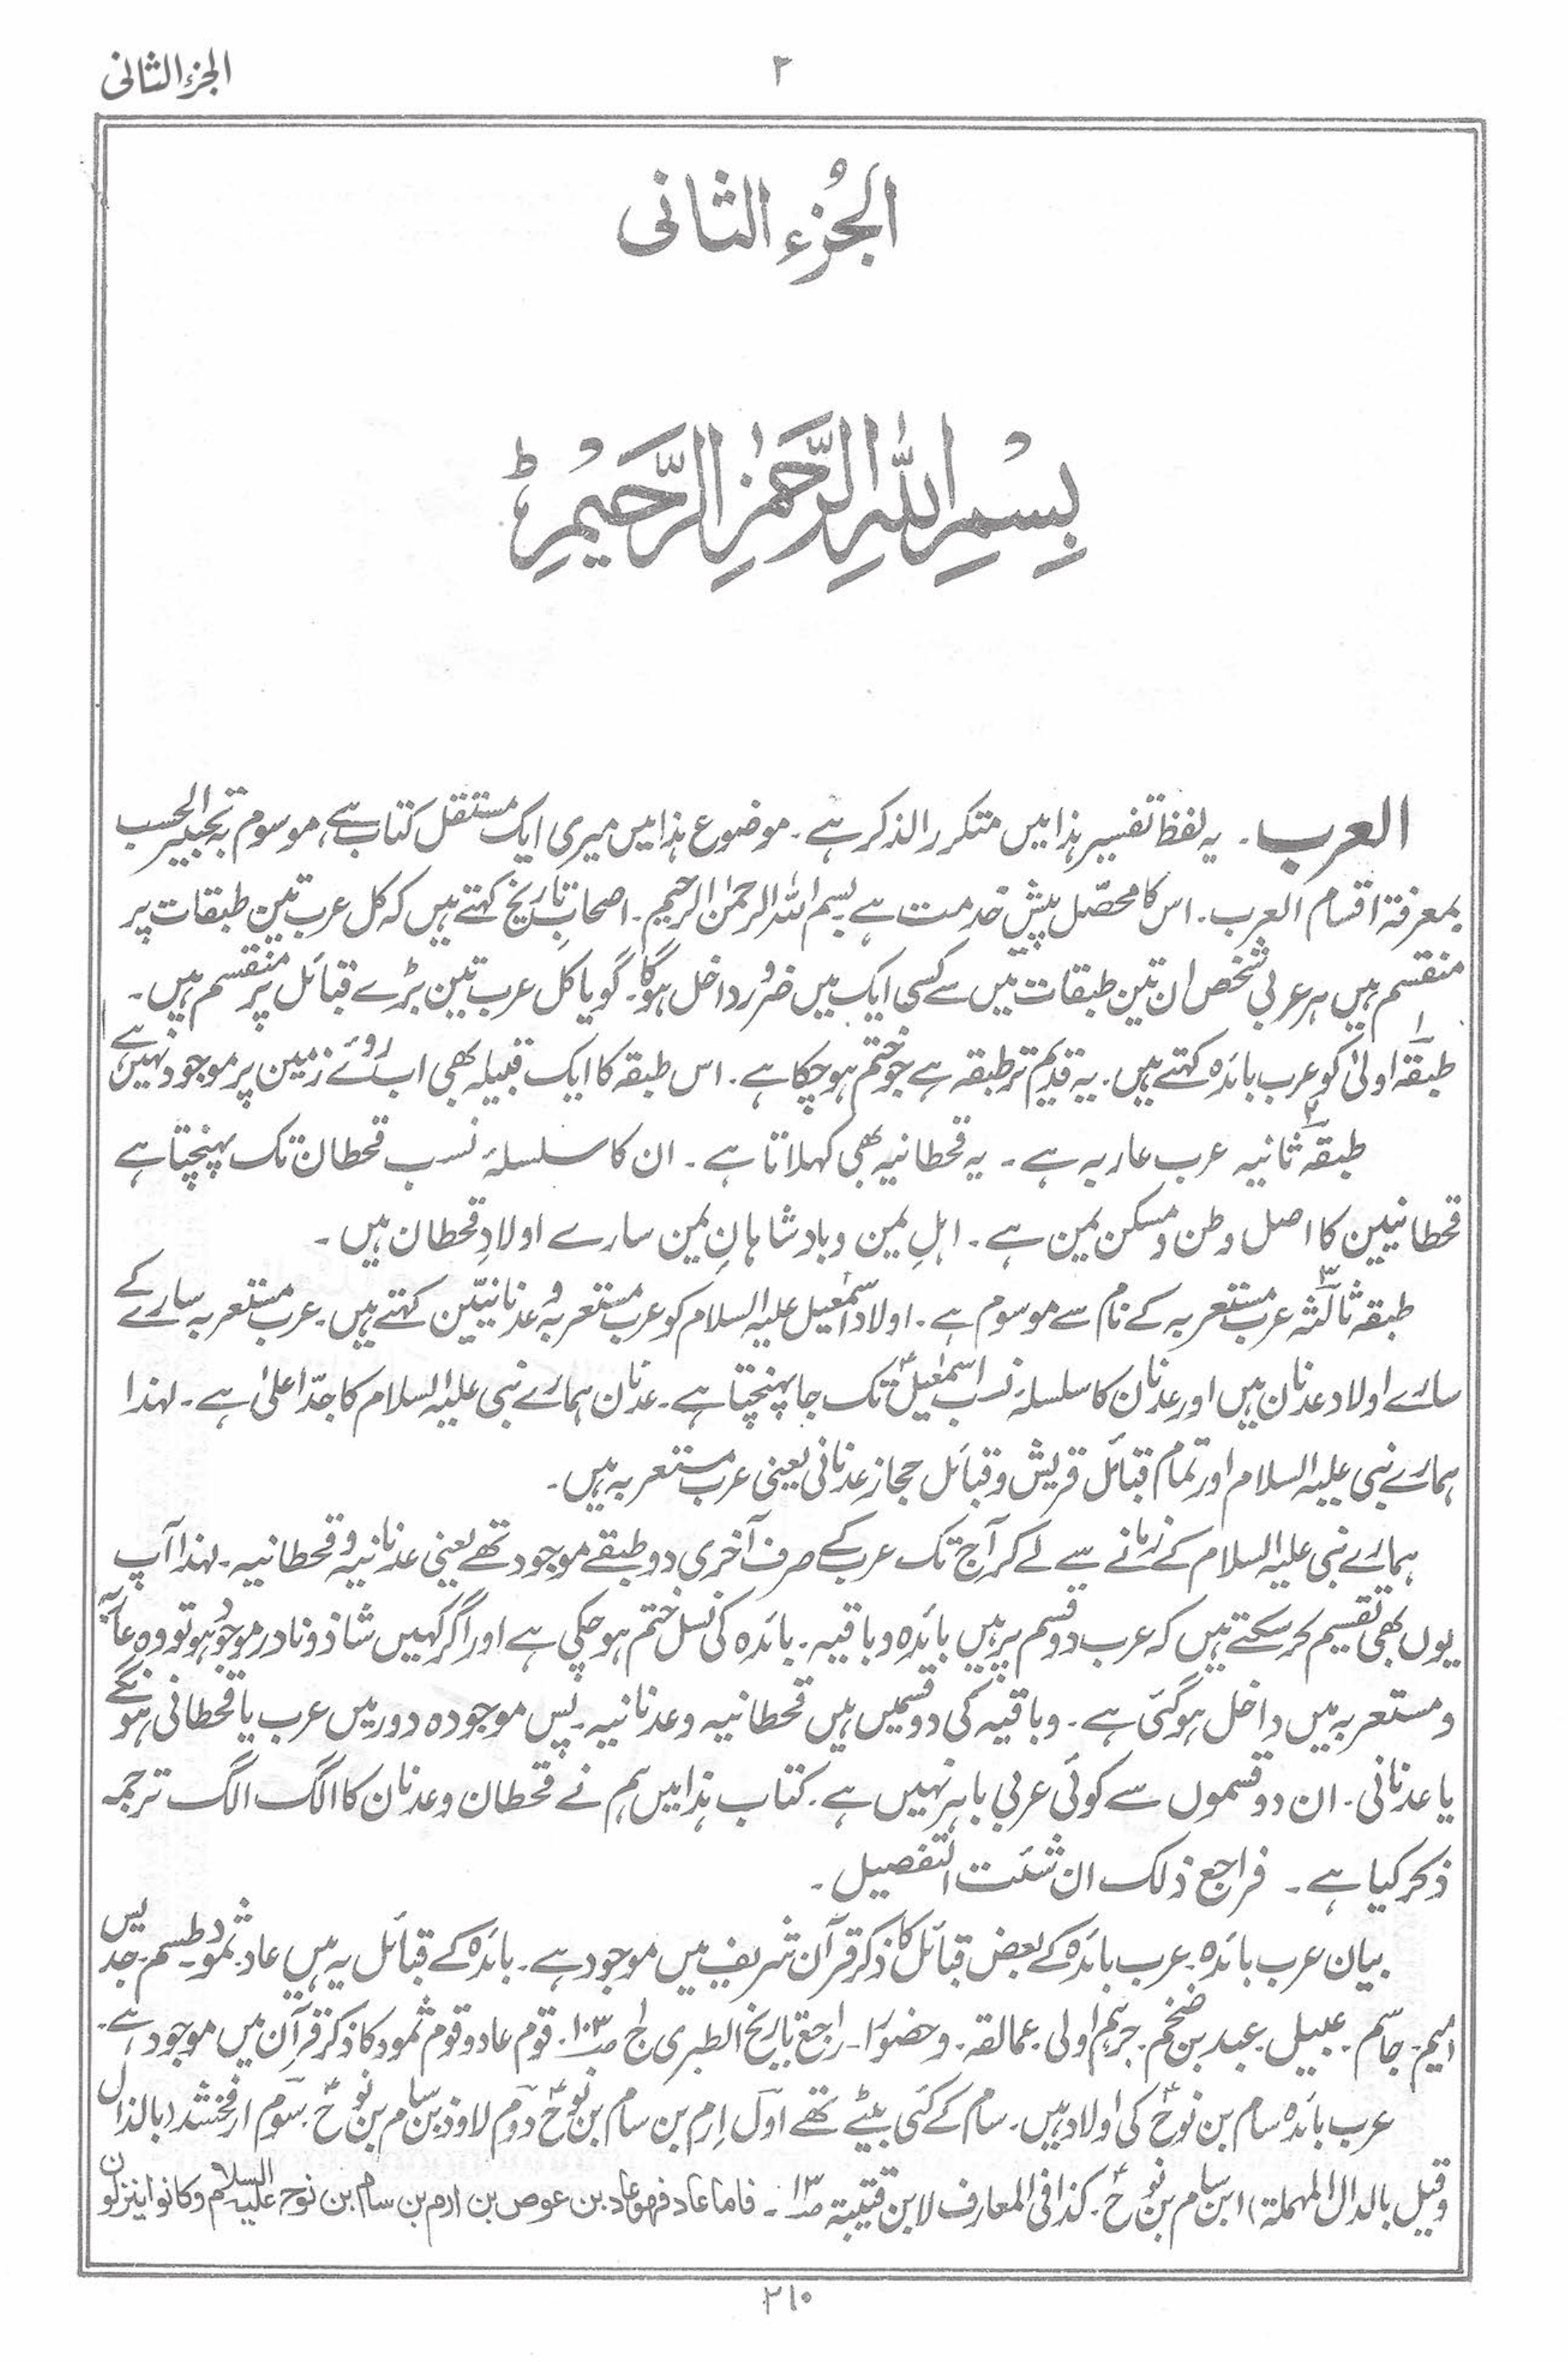 الجزء الثانی
۳
الجُزء الثانی
بِسْمِ اللّٰهِ الرَّحْمٰنِ الرَّحِیْمِ ؕ
العرب ۔ یہ لفظ تفسیر ہذا میں متکرر الذکر ہے ۔ موضوع ہذا میں میری ایک مستقل کتاب ہے، موسوم بہ تحبیر الحسب
بمعرفۃ اقسام العرب ۔ اس کا محصّل پیش خدمت ہے بسم اللہ الرحمٰن الرحیم ۔ اصحابِ تاریخ کہتے ہیں کہ کل عرب تین طبقات پر
منقسم ہیں ہر عربی شخص ان تین طبقات میں سے کسی ایک میں ضرور داخل ہوگا ۔ گویا کل عرب تین بڑے قبائل پر منقسم ہیں ۔
۱ طبقۂ اولیٰ کو عرب بائدہ کہتے ہیں ۔ یہ قدیم تر طبقہ ہے جو ختم ہو چکا ہے ۔ اس طبقہ کا ایک قبیلہ بھی اب روئے زمین پر موجود نہیں ہے
۲ طبقۂ ثانیہ عرب عاربہ ہے ۔ یہ قحطانیہ بھی کہلاتا ہے ۔ ان کا سلسلۂ نسب قحطان تک پہنچتا ہے
قحطانیین کا اصل وطن و مسکن یمن ہے ۔ اہلِ یمن و بادشاہانِ یمن سارے اولادِ قحطان ہیں ۔
۳ طبقہ ثالثہ عرب مستعربہ کے نام سے موسوم ہے ۔ اولاد اسمٰعیل علیہ السلام کو عرب مستعربہ و عدنانیّین کہتے ہیں ۔ عرب مستعربہ سارے کے
سارے اولاد عدنان ہیں اور عدنان کا سلسلۂ نسب اسمٰعیلؑ تک جا پہنچتا ہے ۔ عدنان ہمارے نبی علیہ السلام کا جدّ اعلیٰ ہے ۔ لہذا
ہمارے نبی علیہ السلام اور تمام قبائل قریش و قبائل حجاز عدنانی یعنی عرب مستعربہ ہیں ۔
ہمارے نبی علیہ السلام کے زمانے سے لے کر آج تک عرب کے صرف آخری دو طبقے موجود تھے یعنی عدنانیہ و قحطانیہ ۔ لہذا آپ
یوں بھی تقسیم کر سکتے ہیں کہ عرب دو قسم پر ہیں بائدہ و باقیہ ۔ بائدہ کی نسل ختم ہو چکی ہے اور اگر کہیں شاذ و نادر موجود ہو تو وہ عاربہ
و مستعربہ میں داخل ہوگئی ہے ۔ و باقیہ کی دو قسمیں ہیں قحطانیہ و عدنانیہ ۔ پس موجودہ دور میں عرب یا قحطانی ہونگے
یا عدنانی ۔ ان دو قسموں سے کوئی عربی باہر نہیں ہے ۔ کتاب ہذا میں ہم نے قحطان و عدنان کا الگ الگ ترجمہ
ذکر کیا ہے ۔ فراجع ذلک ان شئت التفصیل ۔
بیان عرب بائدہ ۔ عرب بائدہ کے بعض قبائل کا ذکر قرآن شریف میں موجود ہے ۔ بائدہ کے قبائل یہ ہیں عاد ۔ ثمود ۔ طسم ۔ جدیس
امیم ۔ جاسم ۔ عبیل ۔ عبد بن ضخم ۔ جرہم اولی ۔ عمالقہ ۔ و حضورا ۔ راجع تاریخ الطبری ج۱ ص۱۰۳ ۔ قوم عاد و قوم ثمود کا ذکر قرآن میں موجود ہے ۔
عرب بائدہ سام بن نوحؑ کی اولاد ہیں ۔ سام کے کئی بیٹے تھے اول اِرم بن سام بن نوحؑ دوم لاوذ بن سام بن نوحؑ ۔ سوم ارفخشذ (بالذال
وقیل بالدال المہملۃ) ابن سام بن نوحؑ ۔ کذا فی المعارف لابن قتیبۃ ص۱۳ ۔ فاما عاد فھو عاد بن عوص بن ارم بن سام بن نوح علیہ السلام وکانوا ینزلون
۲۱۰